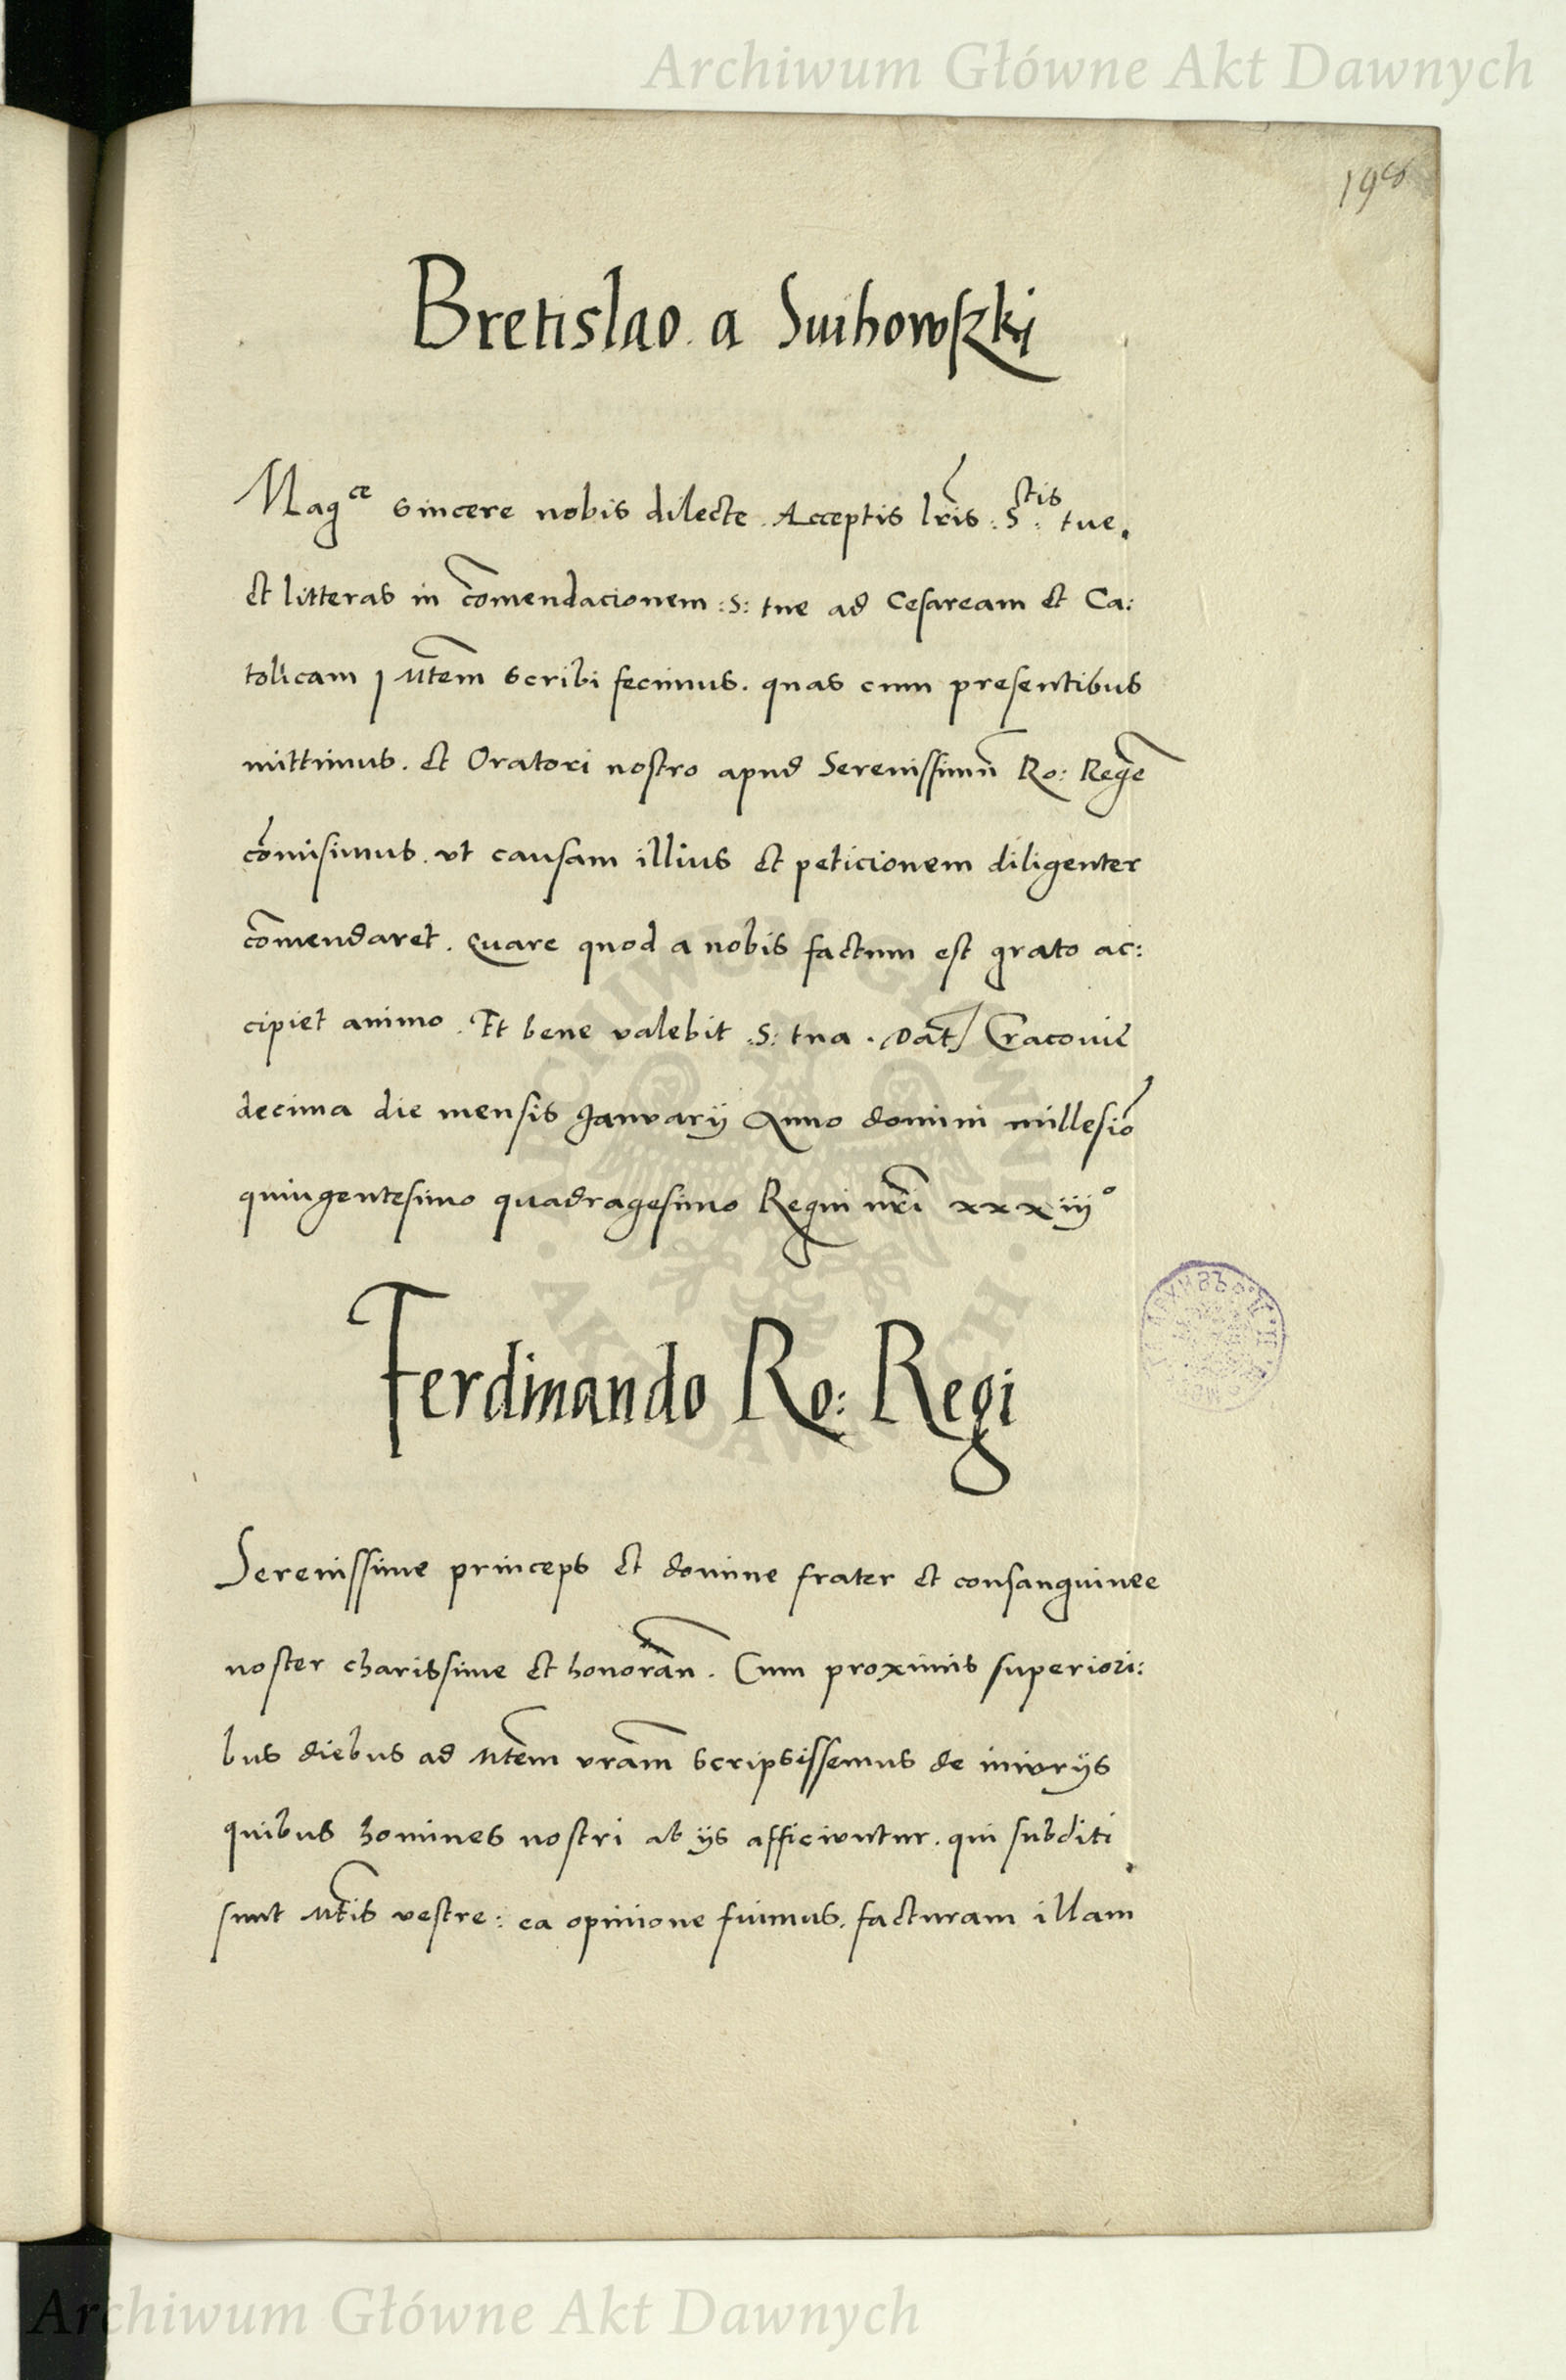 Archiwum Główne Akt Dawnych
198
Bretislao a Swihowskj
Mag^ce sincere nobis dilecte. Acceptis lr̃is :S^ctis: tue.
et litteras in cõmendacionem :S: tue ad Cesaream et Ca:
tolicam Mtem scribi fecimus. quas cum presentibus
mittimus. et Oratori nostro apud Serenissimũ Ro: Regẽ
cõmisimus. vt causam illius et peticionem diligenter
cõmendaret. Quare quod a nobis factum est grato ac:
cipiet animo. Et bene valebit :S: tua. Dat Cracovie
decima die mensis Januarij Anno domini millesiõ
quingentesimo quadragesimo Regni nr̃i xxxiij°
Ferdinando Ro: Regi
Serenissime princeps et domine frater et consanguinee
noster charissime et honorãn. Cum proximis superiori:
bus diebus ad Mtẽm vrãm scripsissemus de iniurijs
quibus homines nostri ab ijs afficiuntur. qui subditi
sunt Mt̃is vestre: ea opinione fuimus, facturam illam
ARCHIWUM GŁÓWNE
AKT DAWNYCH
Archiwum Główne Akt Dawnych